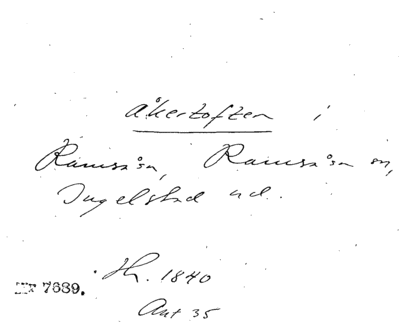 åkertoften i
Ramsåsa, Ramsåsa sn,
Ingelstad hd.
Hr. 1840
MF 7689.
Ant 35